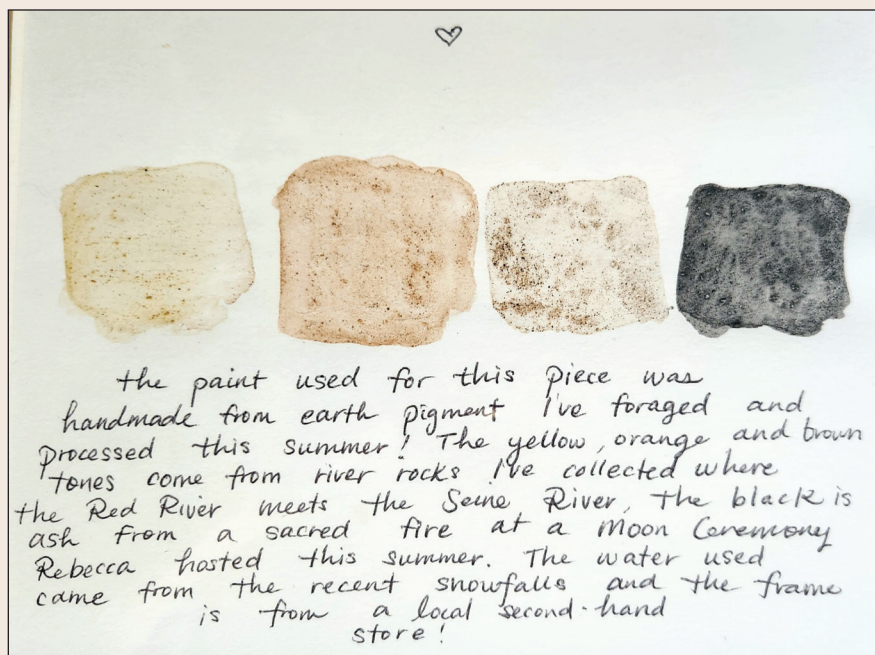 the paint used for this piece was
handmade from earth pigment I've foraged and
processed this summer! The yellow, orange and brown
tones come from river rocks I've collected where
the Red River meets the Seine River, the black is
ash from a sacred fire at a Moon Ceremony
Rebecca hosted this summer. The water used
came from the recent snowfalls and the frame
is from a local second-hand
store!